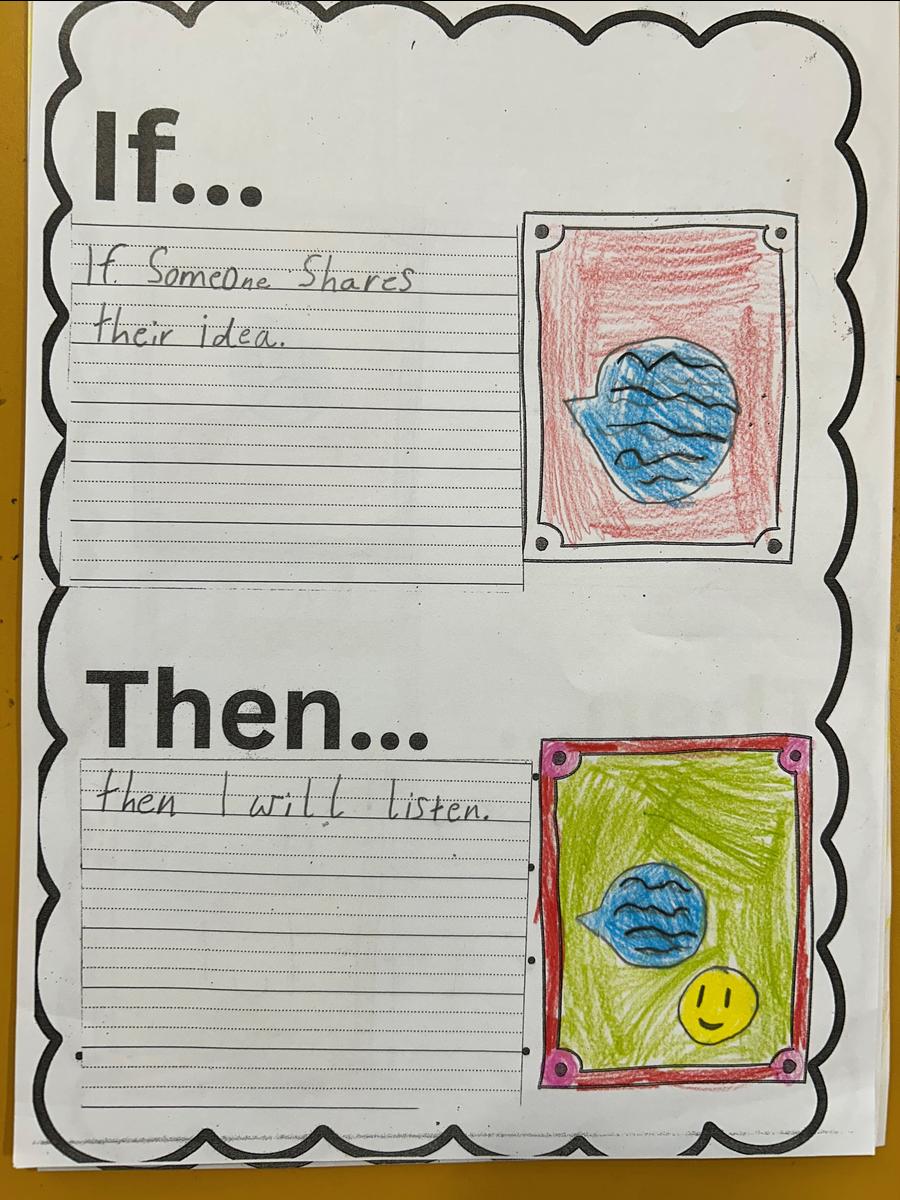 If...
If Someone Shares
their idea.
Then...
then I will listen.